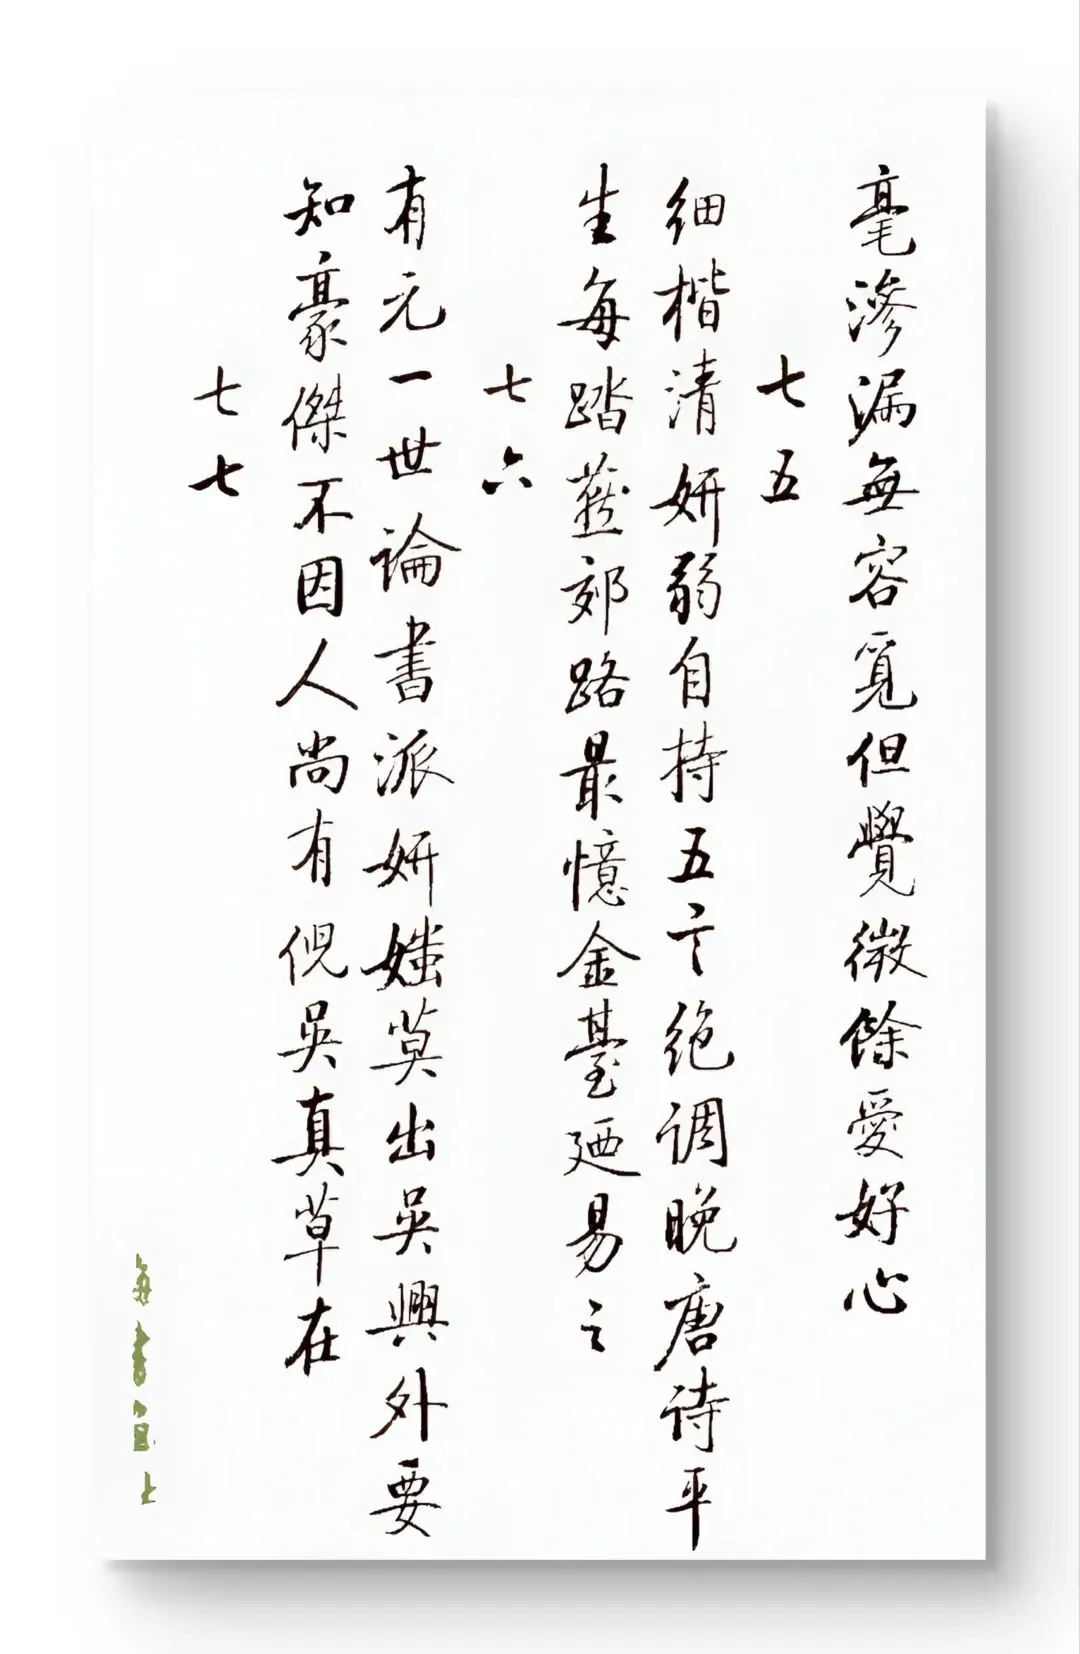 毫滲漏無容覓但覺微餘愛好心
七五
细楷清妍弱自持五言绝调晚唐诗平
生每踏燕郊路最憶金臺廼易之
七六
有元一世論書派妍媸莫出吳興外要
知豪傑不因人尚有倪吳真草在
七七